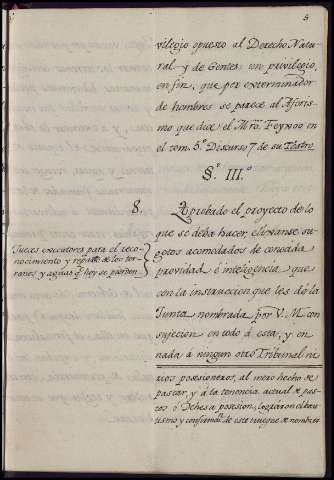 5
vilegio opuesto al Derecho Natu-
ral y de Gentes: un privilegio,
en fin, que por exterminador
de hombres se parece al Aforis-
mo que dice el Mro. Feyxoo en
el tom. 5.º Discurso 7 de su Teatro.
§.º III.º
8. Aprobado el proyecto de lo
que se deba hacer, elixanse su-
getos acomodados de conocida
providad é inteligencia que
con la instruccion que les dé la
Junta nombrada por V. M. con
sujecion en todo á esta, y en
nada á ningun otro Tribunal na
Jueces executores para el reco-
nocimiento y repartº de los ter-
renos y aguas q.e hoy se pierden
rios posesioneros, al mero hecho de
pastar, y á la tenencia actual de pas-
tos ó Dehesa posesion; lograron el
ustimo y confirmaⁿ de este trueque de nombres